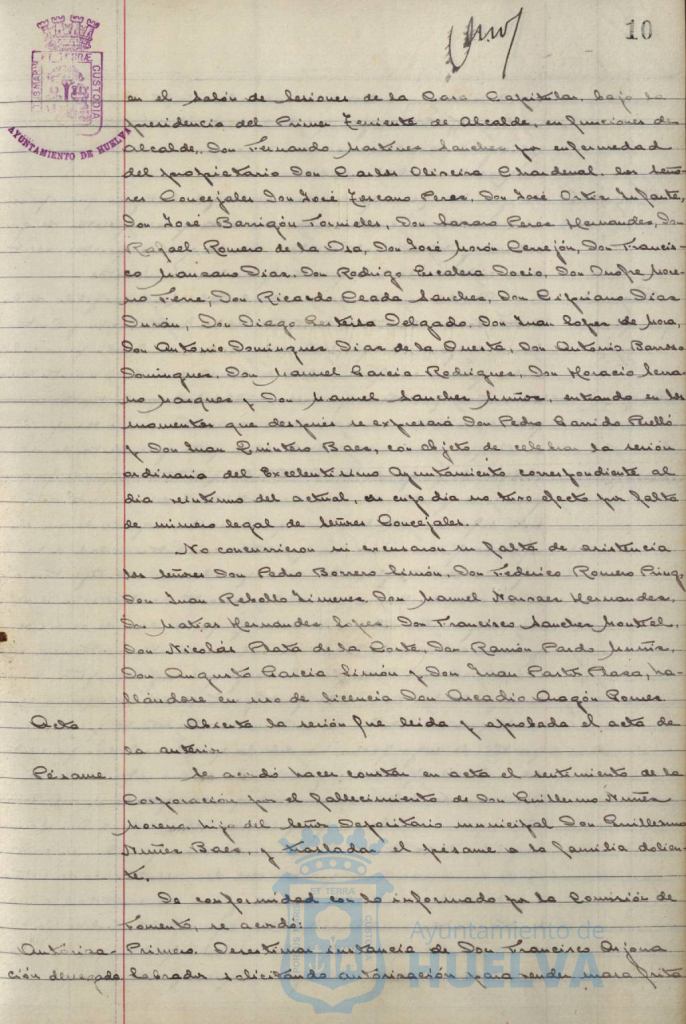 10
AYUNTAMIENTO DE HUELVA
en el Salón de Sesiones de la Casa Capitular, bajo la
presidencia del Primer Teniente de Alcalde, en funciones de
Alcalde, Don Fernando Martinez Sanchez por enfermedad
del propietario Don Carlos Oliveira Chardenal, los Seño-
res Concejales Don José Toscano Perez, Don José Ortiz Infante,
Don José Barrigón Fornieles, Don Lazaro Perez Hernandez, Don
Rafael Romero de la Osa, Don José Morón Cerrejón, Don Francis-
co Manzano Diaz, Don Rodrigo Escalera Docio, Don Onofre More-
no Ferre, Don Ricardo Ceada Sanchez, Don Cipriano Diaz
Durán, Don Diego Delgado, Don Juan Lopez de Mora,
Don Antonio Dominguez Diaz de la Cuesta, Don Antonio Barroso
Dominguez, Don Manuel Garcia Rodriguez, Don Horacio Serra-
no Marquez y Don Manuel Sanchez Muñoz, entrando en los
momentos que después se expresará Don Pedro Garrido Perelló
y Don Juan Quintero Baez, con objeto de celebrar la sesión
ordinaria del Excelentísimo Ayuntamiento correspondiente al
dia veintiuno del actual, en cuyo dia no tuvo efecto por falta
de número legal de Señores Concejales.
No concurrieron ni excusaron su falta de asistencia
los Señores Don Pedro Borrero Limón, Don Federico Romero
Don Juan Rebollo Jimenez, Don Manuel Narvaez Hernandez,
Don Matías Hernandez Lopez, Don Francisco Sanchez Montiel,
Don Nicolás Plata de la Corte, Don Ramón Pardo Muñiz,
Don Augusto Garcia Limón y Don Juan Plaza, ha-
llándose en uso de licencia Don Arcadio Aragón Gomez
Acta Abierta la sesión fue leida y aprobada el acta de
la anterior
Pésame Se acordó hacer constar en acta el sentimiento de la
Corporación por el fallecimiento de Don Guillermo Nuñez
Moreno, hijo del Señor Depositario municipal Don Guillermo
Nuñez Baez, y trasladar el pésame a la familia dolien-
te.
De conformidad con lo informado por la Comisión de
Fomento, se acordó:
Autoriza- Primero. Desestimar instancia de Don Francisco Arjona
ción denegada Labrador solicitando autorización para vender masa frita
Ayuntamiento de
HUELVA